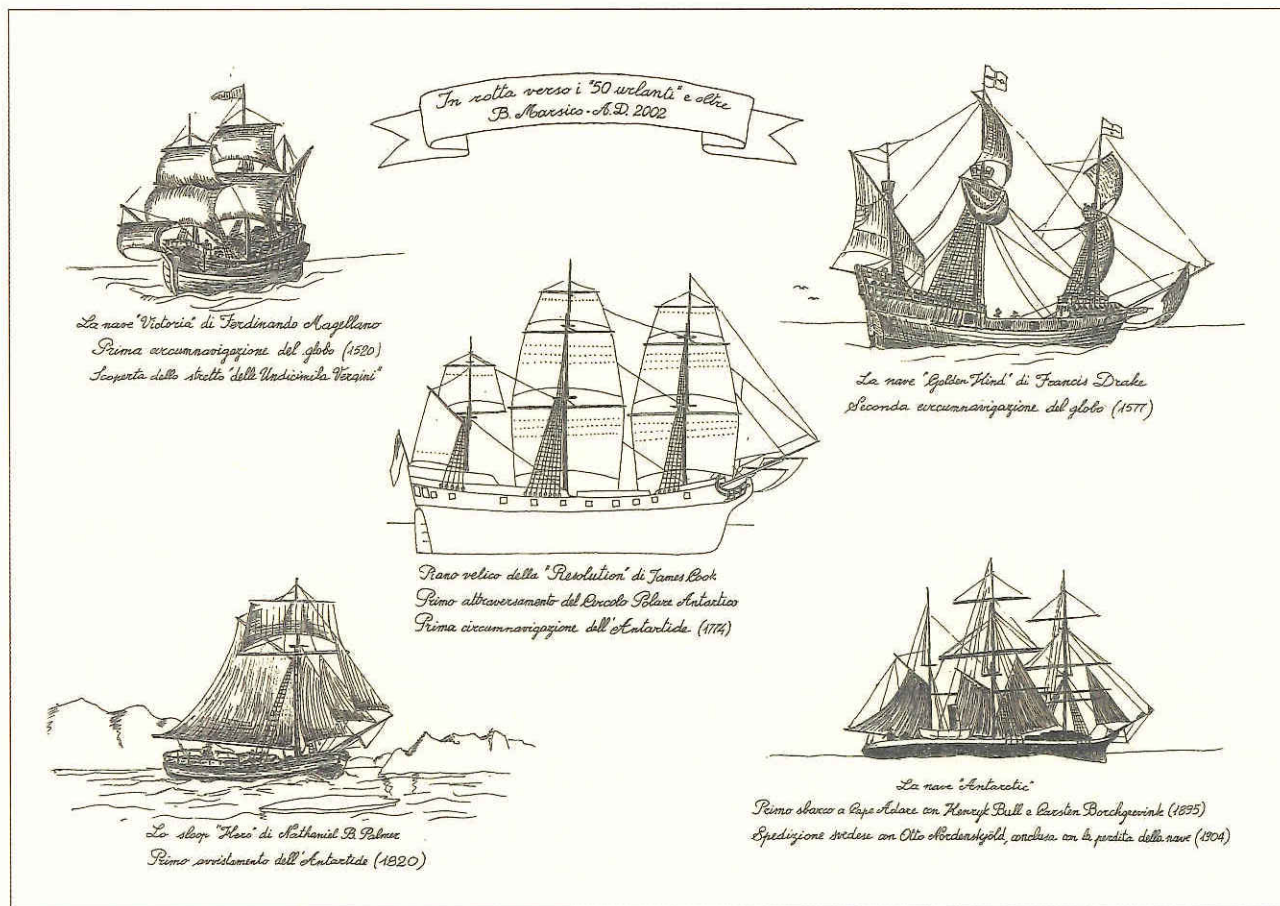 In rotta verso i "50 urlanti" e oltre
B. Marsico - A.D. 2002
La nave "Victoria" di Ferdinando Magellano
Prima circumnavigazione del globo (1520)
Scoperta dello stretto "delle Undicimila Vergini"
La nave "Golden Hind" di Francis Drake
Seconda circumnavigazione del globo (1577)
Piano velico della "Resolution" di James Cook
Primo attraversamento del Circolo Polare Antartico
Prima circumnavigazione dell'Antartide (1774)
Lo sloop "Hero" di Nathaniel B. Palmer
Primo avvistamento dell'Antartide (1820)
La nave "Antarctic"
Primo sbarco a Cape Adare con Henryk Bull e Carsten Borchgrevink (1895)
Spedizione svedese con Otto Nordenskjöld, conclusa con la perdita della nave (1904)